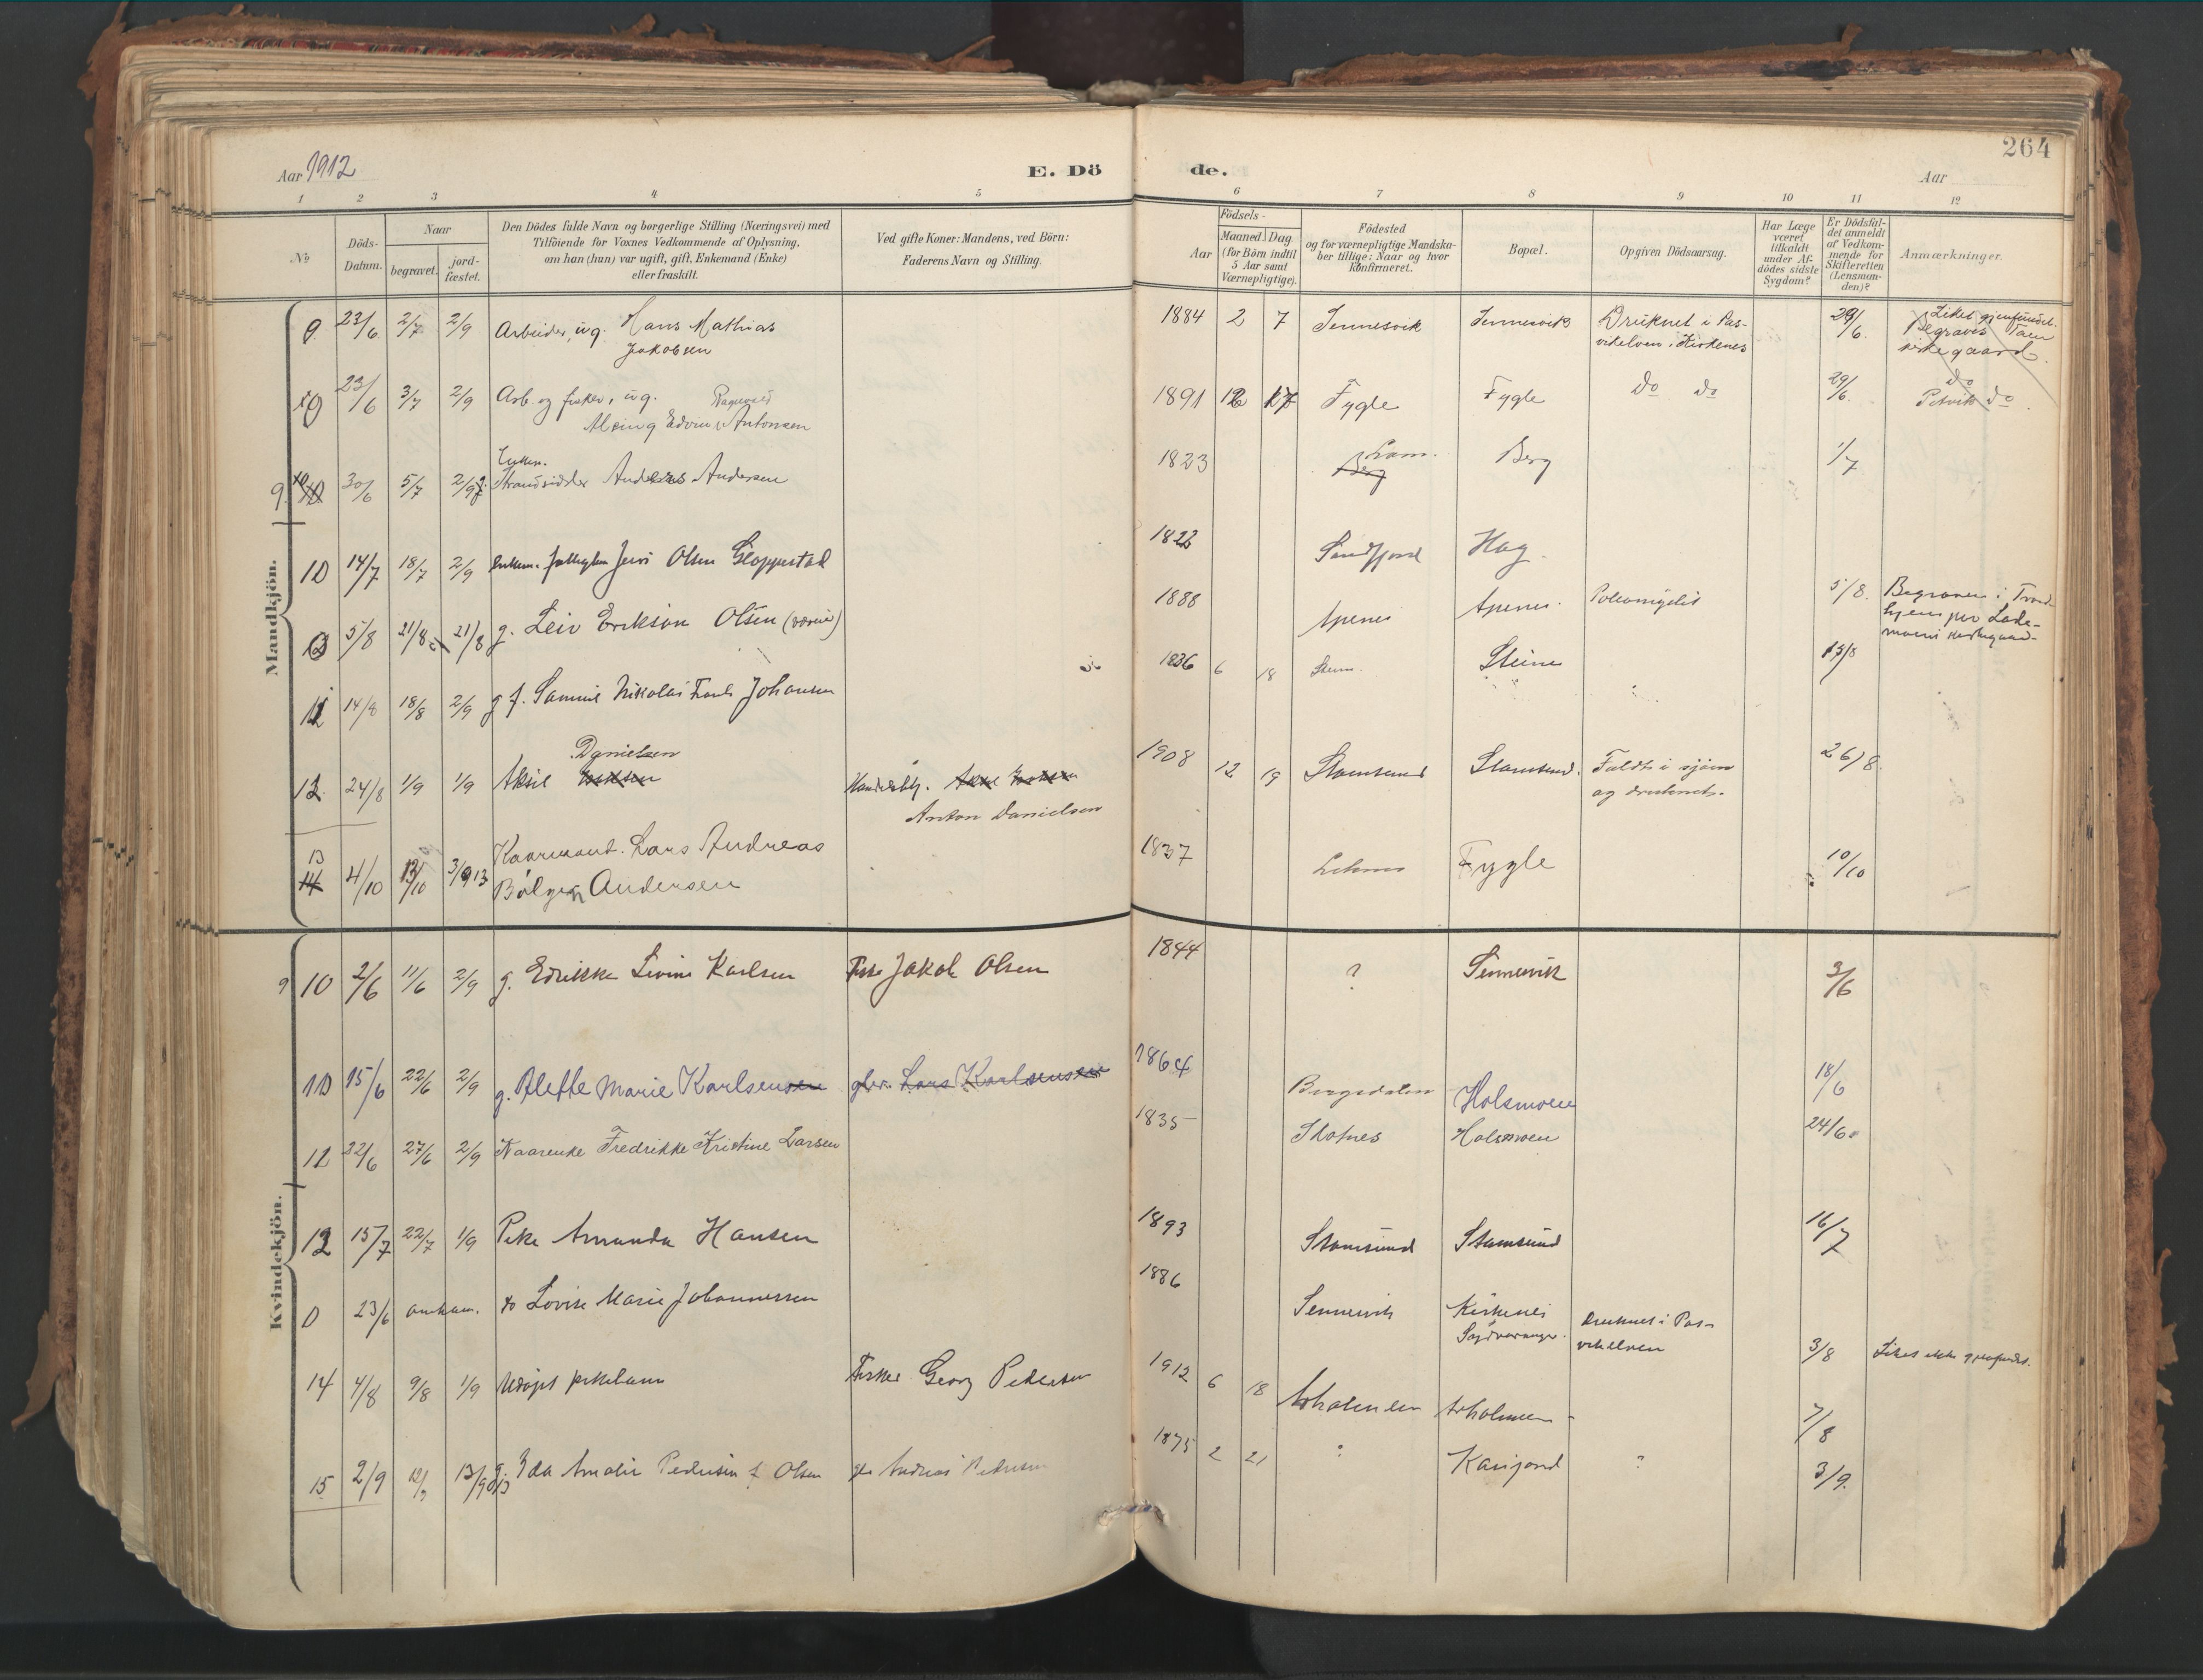 264
Aar 1912
E. Dö de.
Aar
1 2 3 4 5 6 7 8 9 10 11 12
No
Döds-Datum.
Naar
begravet.
jord-fæstet.
Den Dödes fulde Navn og borgerlige Stilling (Næringsvei) med
Tilföiende for Voxnes Vedkommende af Oplysning,
om han (hun) var ugift, gift, Enkemand (Enke)
eller fraskilt.
Ved gifte Koner: Mandens, ved Börn:
Faderens Navn og Stilling.
Födsels-
Aar
Maaned. Dag
(for Börn indtil
5 Aar samt
Værnepligtige).
Födested
og for værnepligtige Mandska-
ber tillige: Naar og hvor
konfirmeret.
Bopæl.
Opgiven Dödsaarsag.
Har Læge
været
tilkaldt
under Af-
dödes sidste
Sygdom?
Er Dödsfal-
det anmeldt
af Vedkom-
mende for
Skifteretten
(Lensman-
den)?
Anmærkninger.
Mandkjön.
23/6 2/7 2/9 Arbeider, ug. Hans Mathias
Jakobsen
1884 2 7 Sennesvik Sennesvik Druknet i Pas-
vikelven i Kirkenes 29/6. Liket gjenfundet.
Begraves
kirkegaard.
23/6 3/7 2/9 Arb. og fisker, ug.
Edvin Antonsen
1891 12 17 Fygle Fygle do do 29/6. do
do
9. 30/6 5/7 2/9 Enkem.
Strandsidder Anderas Andersen
1823 Berg Berg 1/7
10 14/7 18/7 2/9 Enkem. Jens Olsen Gloppestad
1822 Sandfjord Hag
5/8 21/8 21/8 g. Leiv Erikson Olsen
1888 Apenes Apenes. Poliomyelit 5/8. Begraven i Trond-
hjem paa Lade-
moens kirkegaard.
11 14/8 18/8 2/9 g f. Samuel Nikolai Johansen
1836 6 18 Steine 17/8
12. 24/8 1/9 1/9 Danielsen
Aksel
Handelsbtj.
Anton Danielsen
1908 12 19 Stamsund Stamsund. Faldt i sjøen
og druknet. 26/8.
13
14 4/10 13/10 3/9 13 Kaarmand. Lars Andreas
Bølgen Andersen
1837 Fygle 10/10
Kvindekjön.
9 10 2/6 11/6 2/9 g. Edrikke Livine Karlsen Fisker Jakob Olsen
1844 ? Sennesvik 3/6
15/6 22/6 2/9 g. Aleffe Marie Karlsensen Lars Karlsensen
1864 Bergsdalen Holsmoen 18/6
22/6 27/6 2/9 Kaarenke Fredrikke Kristine Larsen
1835 Skotnes Holsmoen 24/6.
12 15/7 22/7 1/9 Pike Amanda Hansen
1893 Stamsund Stamsund 16/7
0 23/6 omkom. do Lovise Marie Johannessen
1886 Sennesvik Kirkenes
Sydvaranger. druknet i Pas-
vikelven 3/8 Liket ikke gjenfundet.
14 4/8 9/8 1/9 Udøpt pikebarn Fisker Georg Pedersen
1912 6 18 7/8
15 2/9 12/9 13/9 g. Ida Amalie Pedersen f. Olsen Andreas Pedersen
1875 2 21 ? ? 3/9.